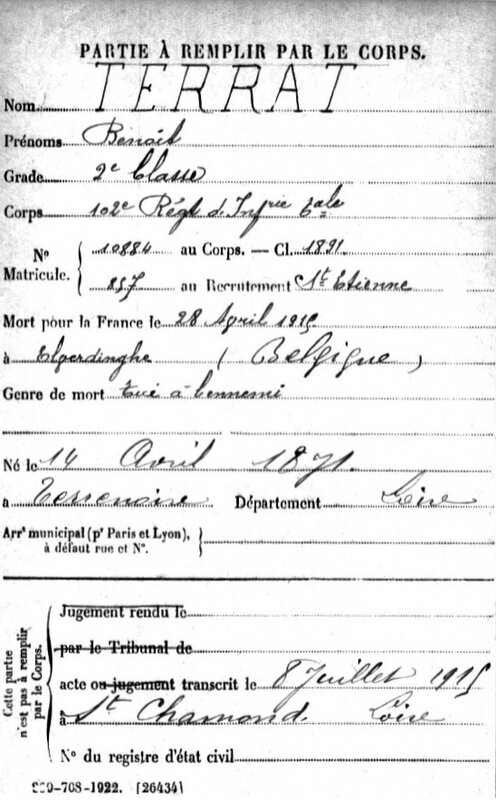 PARTIE À REMPLIR PAR LE CORPS.
Nom TERRAT
Prénoms Benoît
Grade 2e Classe
Corps 102e Régt d'Infrie Tale
No Matricule. 10884 au Corps. — Cl. 1891
857 au Recrutement St Etienne
Mort pour la France le 28 Avril 1915
à Elverdinghe (Belgique)
Genre de mort tué à l'ennemi
Né le 14 Avril 1871.
à Terrenoire Département Loire
Arrt municipal (pr Paris et Lyon),
à défaut rue et No.
Cette partie n'est pas à remplir par le Corps.
Jugement rendu le
par le Tribunal de
acte ou jugement transcrit le 8 Juillet 1915
à St Chamond. Loire
No du registre d'état civil
-708-1922. [26434]